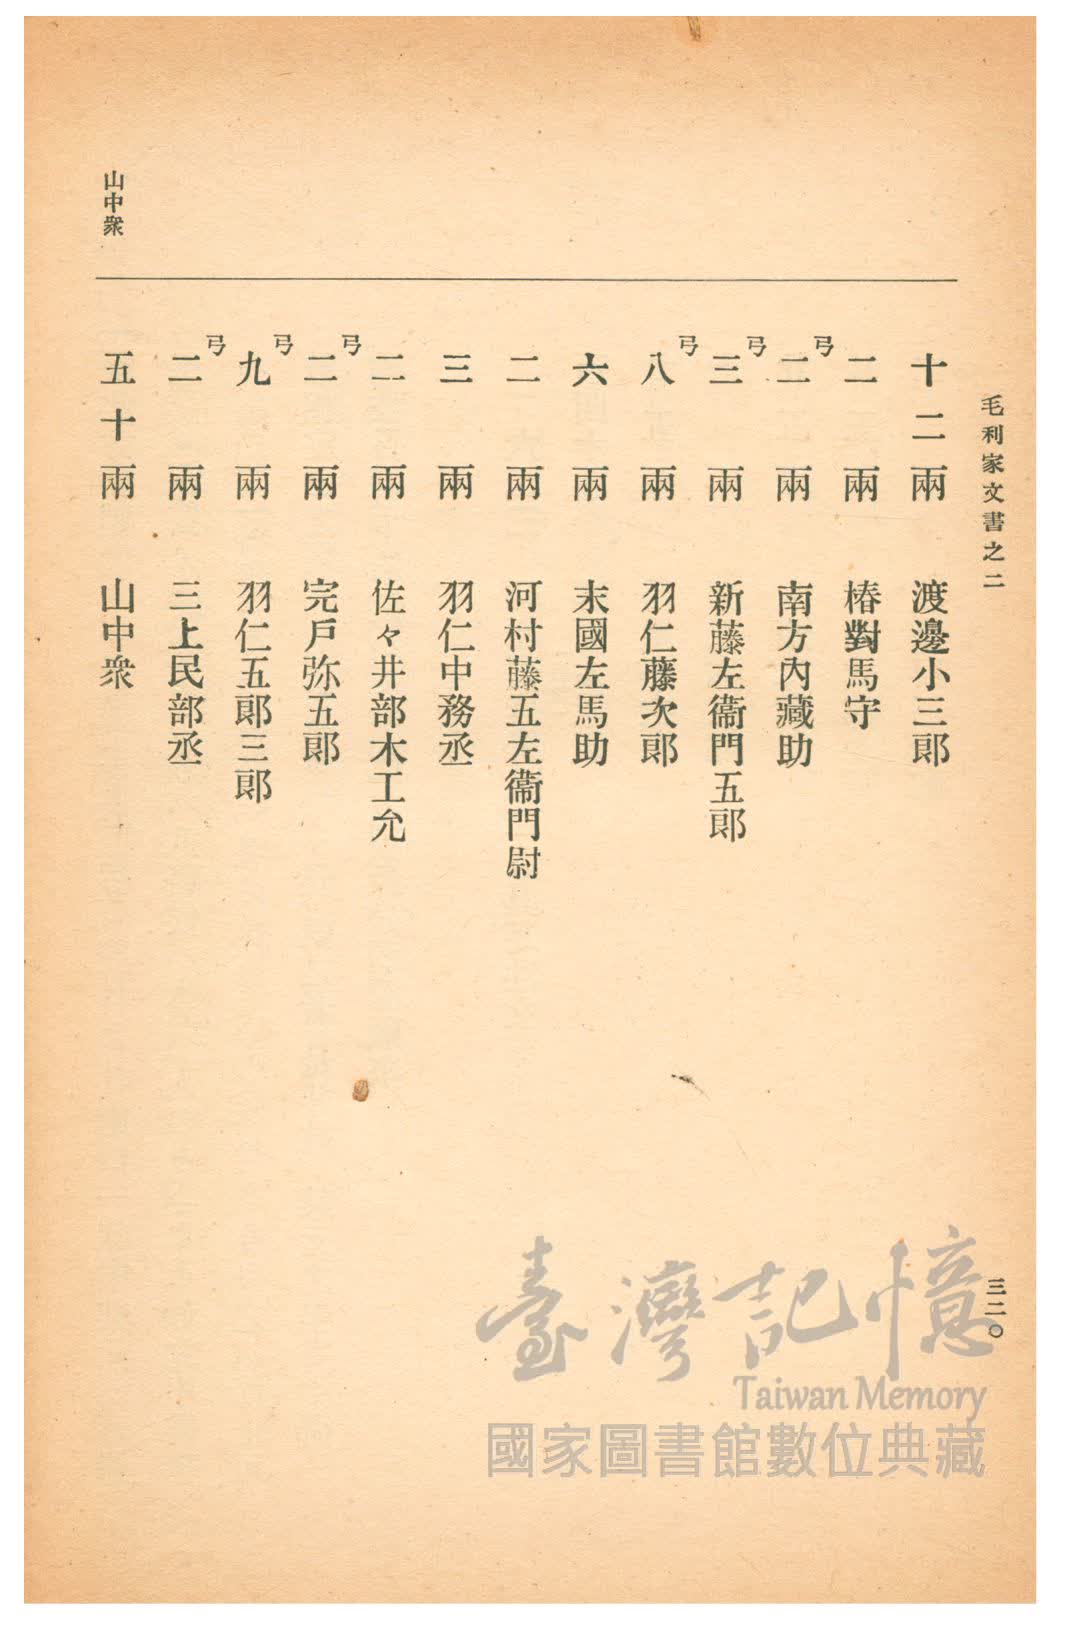 毛利家文書之二
三二〇
十二兩 渡邊小三郎
二兩 椿對馬守
弓二兩 南方內藏助
弓三兩 新藤左衞門五郎
弓八兩 羽仁藤次郎
六兩 末國左馬助
二兩 河村藤五左衞門尉
三兩 羽仁中務丞
二兩 佐々井部木工允
弓二兩 完戶弥五郎
弓九兩 羽仁五郎三郎
弓二兩 三上民部丞
山中衆
五十兩 山中衆
臺灣記憶
Taiwan Memory
國家圖書館數位典藏